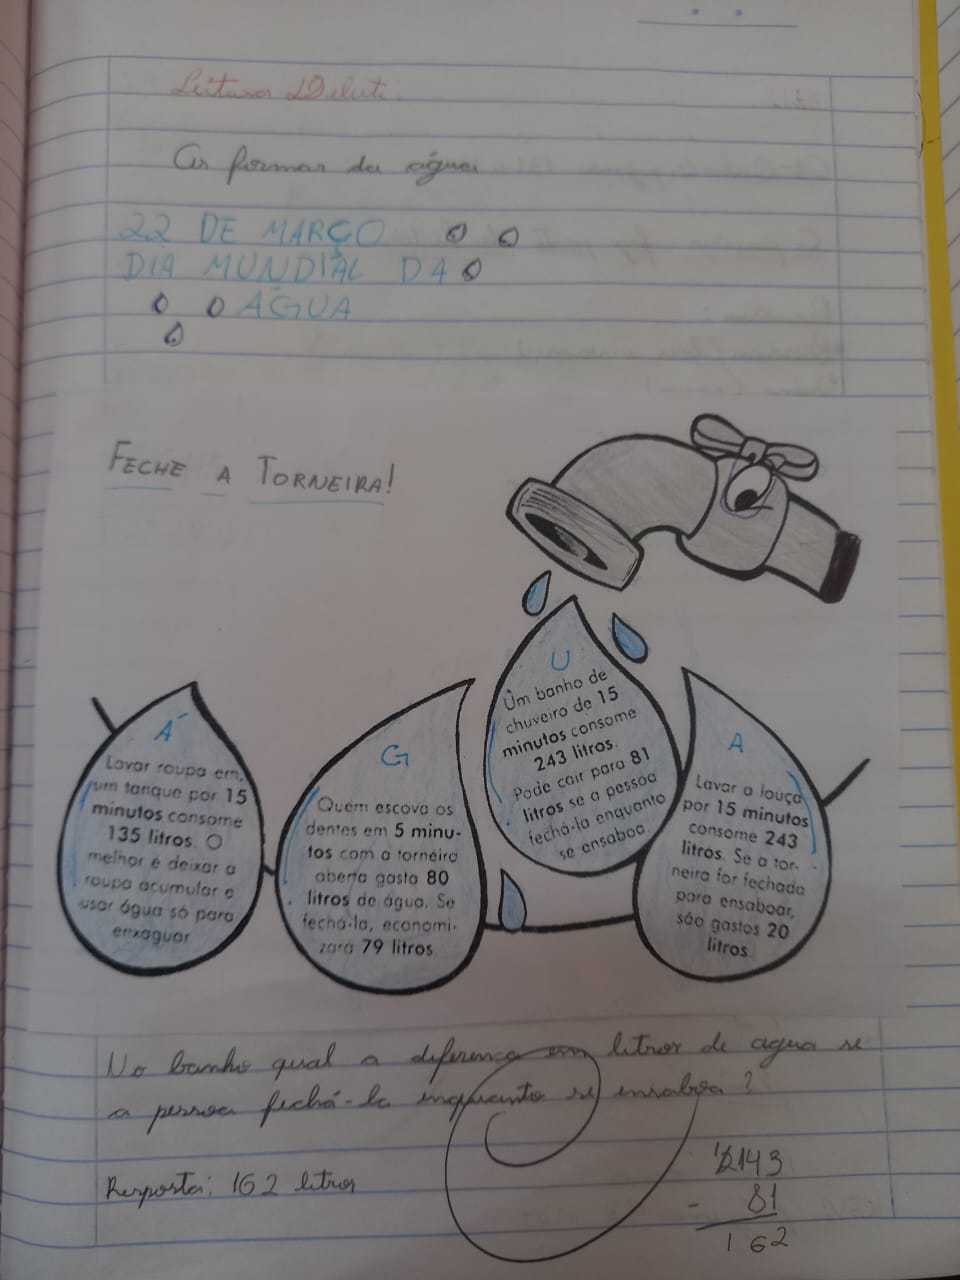 Leitura Deleite.
As formas da água
22 DE MARÇO
DIA MUNDIAL DA
ÁGUA
FECHE A TORNEIRA!
Á
Lavar roupa em
um tanque por 15
minutos consome
135 litros. O
melhor é deixar a
roupa acumular e
usar água só para
enxaguar
G
Quem escova os
dentes em 5 minu-
tos com a torneira
aberta gasta 80
litros de água. Se
fechá-la, economi-
zará 79 litros
U
Um banho de
chuveiro de 15
minutos consome
243 litros.
Pode cair para 81
litros se a pessoa
fechá-la enquanto
se ensaboa.
A
Lavar a louça
por 15 minutos
consome 243
litros. Se a tor-
neira for fechada
para ensaboar,
são gastos 20
litros.
No banho qual a diferença em litros de agua se
a pessoa fechá-la enquanto se ensaboa?
Resposta: 162 litros
1 2143
- 81
162